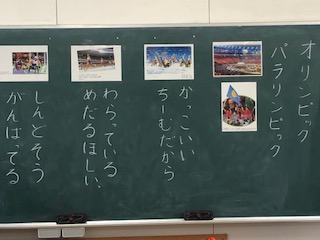 オリンピック
パラリンピック
かっこいい
ちーむだから
わらっている
めだるほしい、
しんどそう
がんばってる